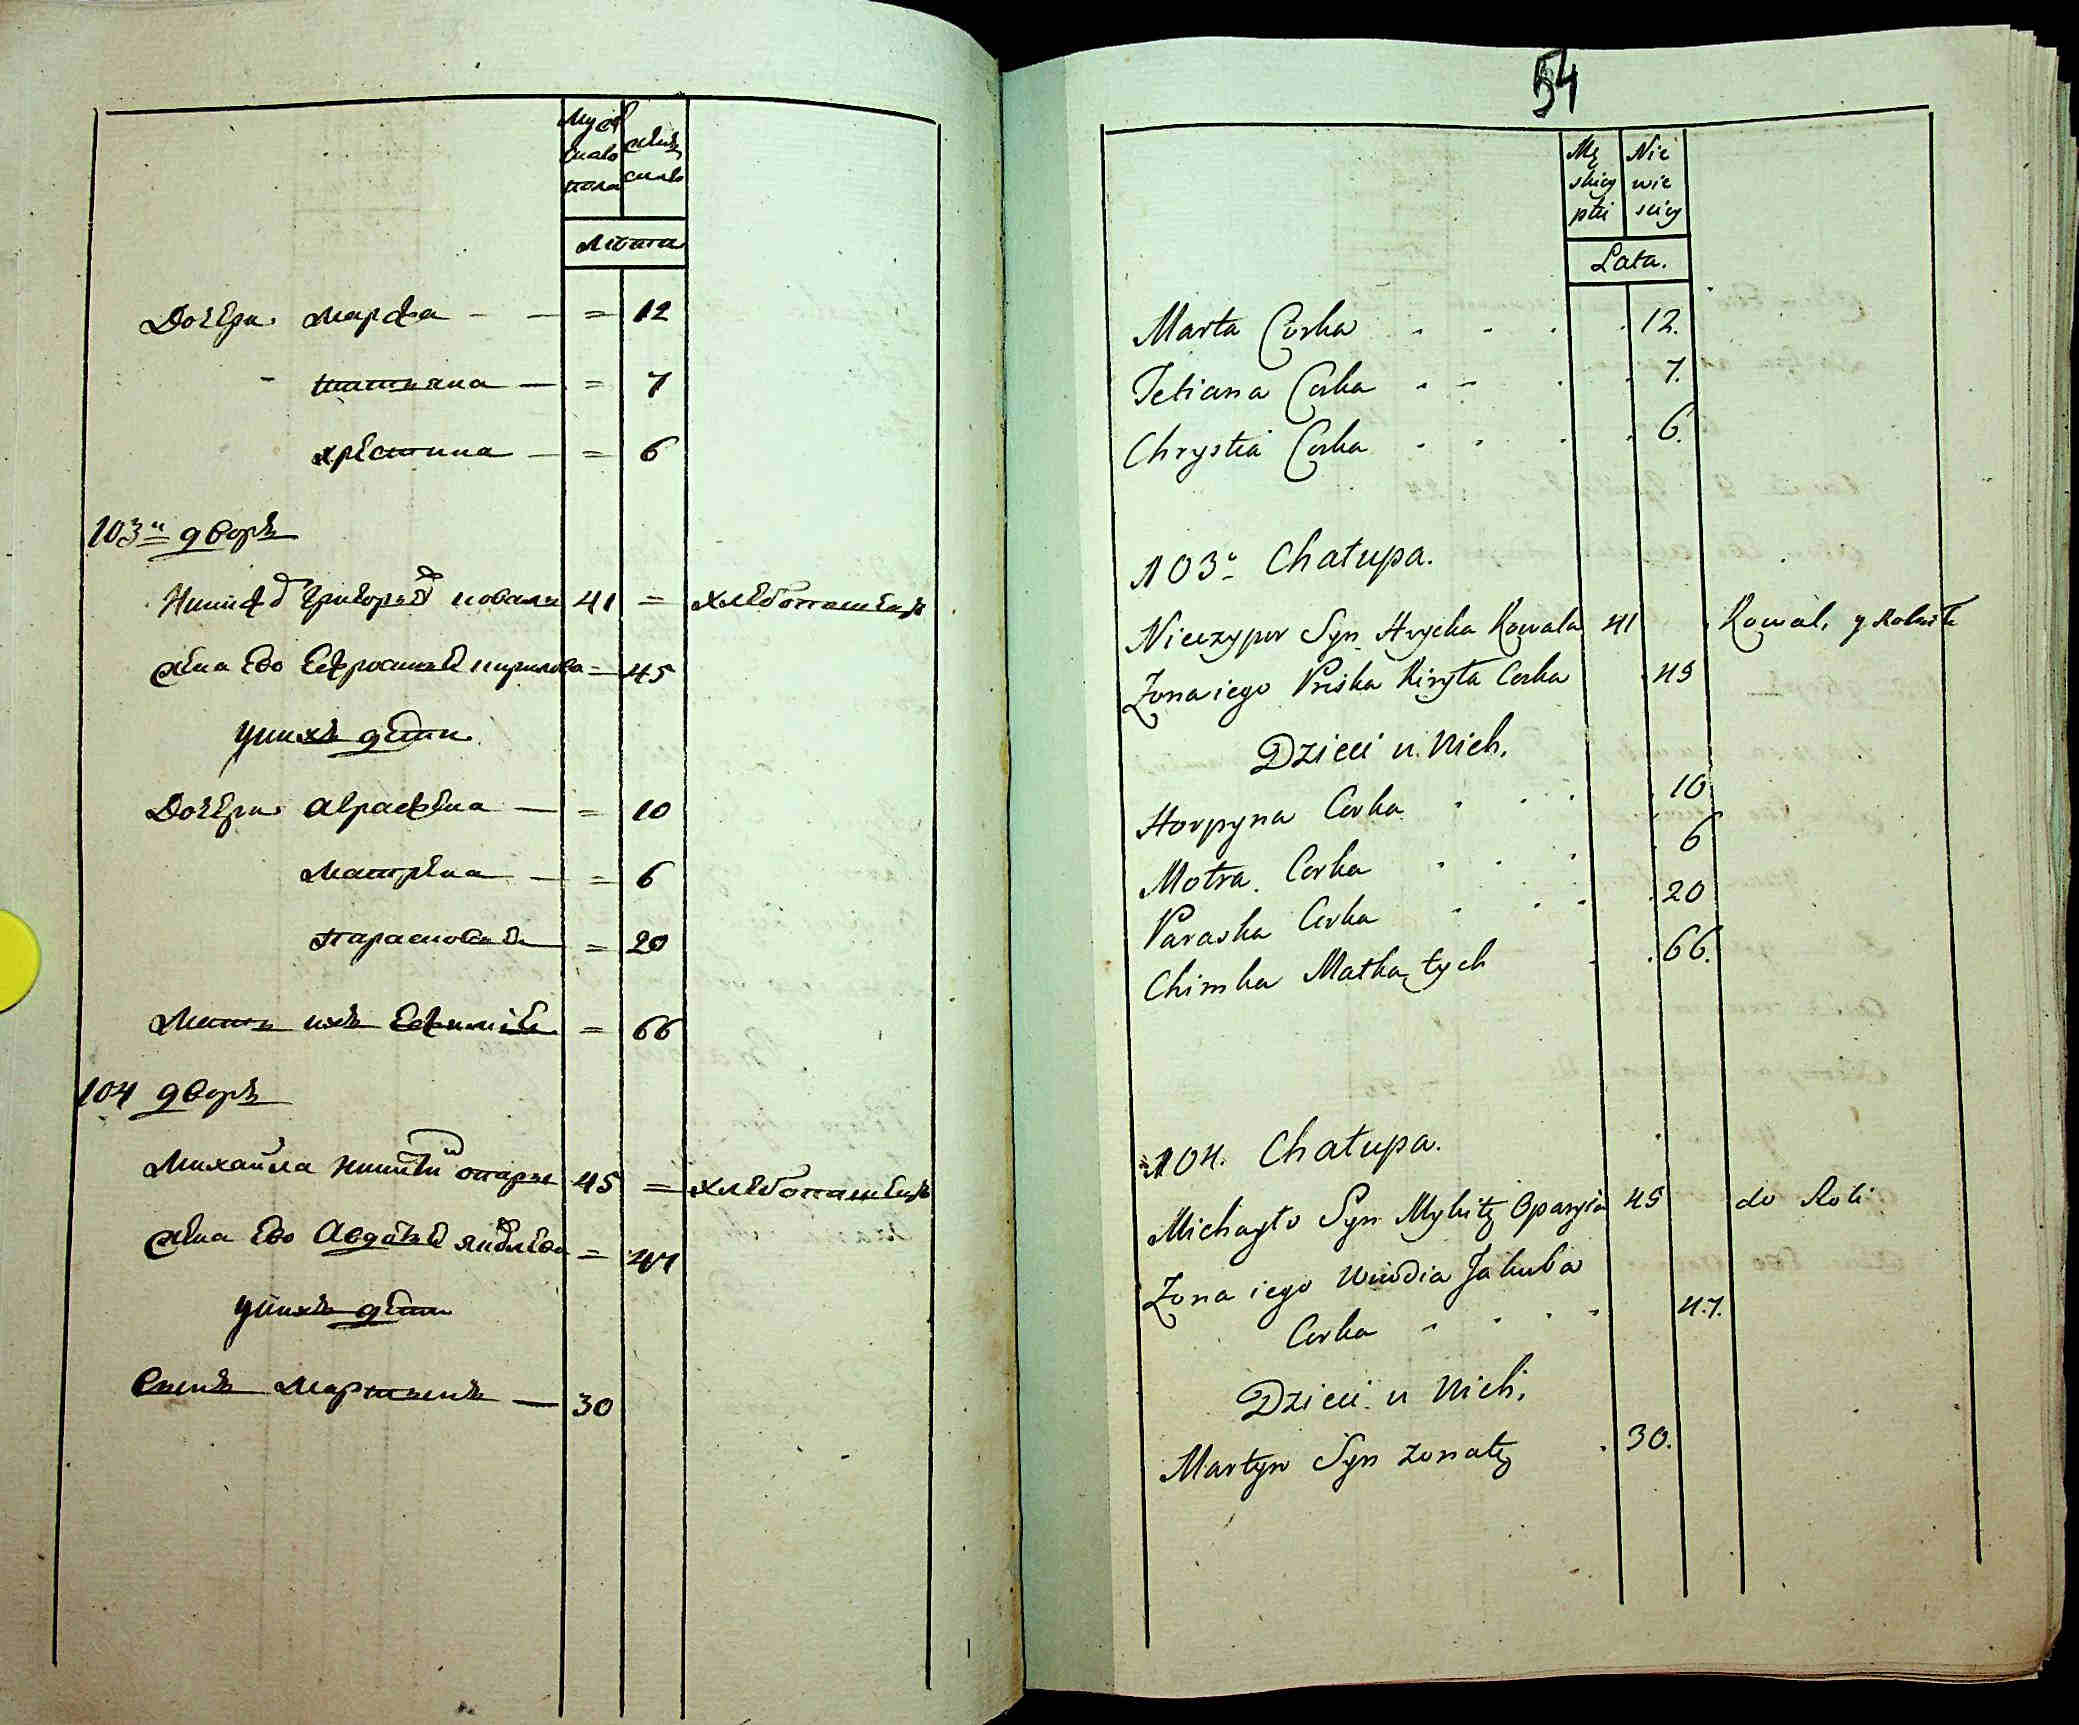 Муже
скаго
пола
женъ
скаго
лѣта
Дочери марфа - — = 12
татьяна — = 7
хрестина — = 6
103й дворъ
Никифо͏р Григорьев коваль 41 = хлебопашецъ
жена Его Ефросинья кирилова = 45
у нихъ дети
Дочери аграфена — = 10
матрена — = 6
парасковия = 20
Мать ихъ Евфимия = 66
104 дворъ
Михайла никитин опары 45 = хлебопашецъ
жена Его Авдотья яковлева = 47
у нихъ дети
Сынъ мартынъ — 30
54
Mę
skiey
płci
Nie
wie
sciey
Lata.
Marta Corka . - . . 12.
Tetiana Corka . - . . 7.
Chrystia Corka . . . . 6.
103a Chałupa.
Nieczypor Syn Hrycka Kowala 41 Kowal, y Rolnik
Zona iego Priska Kiryła Corka 45
Dzieci u Nich.
Horpyna Corka . . . 10
Motra Corka . . . 6
Paraska Corka . . . 20
Chimka Matka tych . . 66.
104. Chałupa.
Michayło Syn Mykity Oparyia 45 do Roli
Zona iego Uwdia Jakuba
Corka . . . . 47.
Dzieci u Nich.
Martyn Syn zonaty . 30.